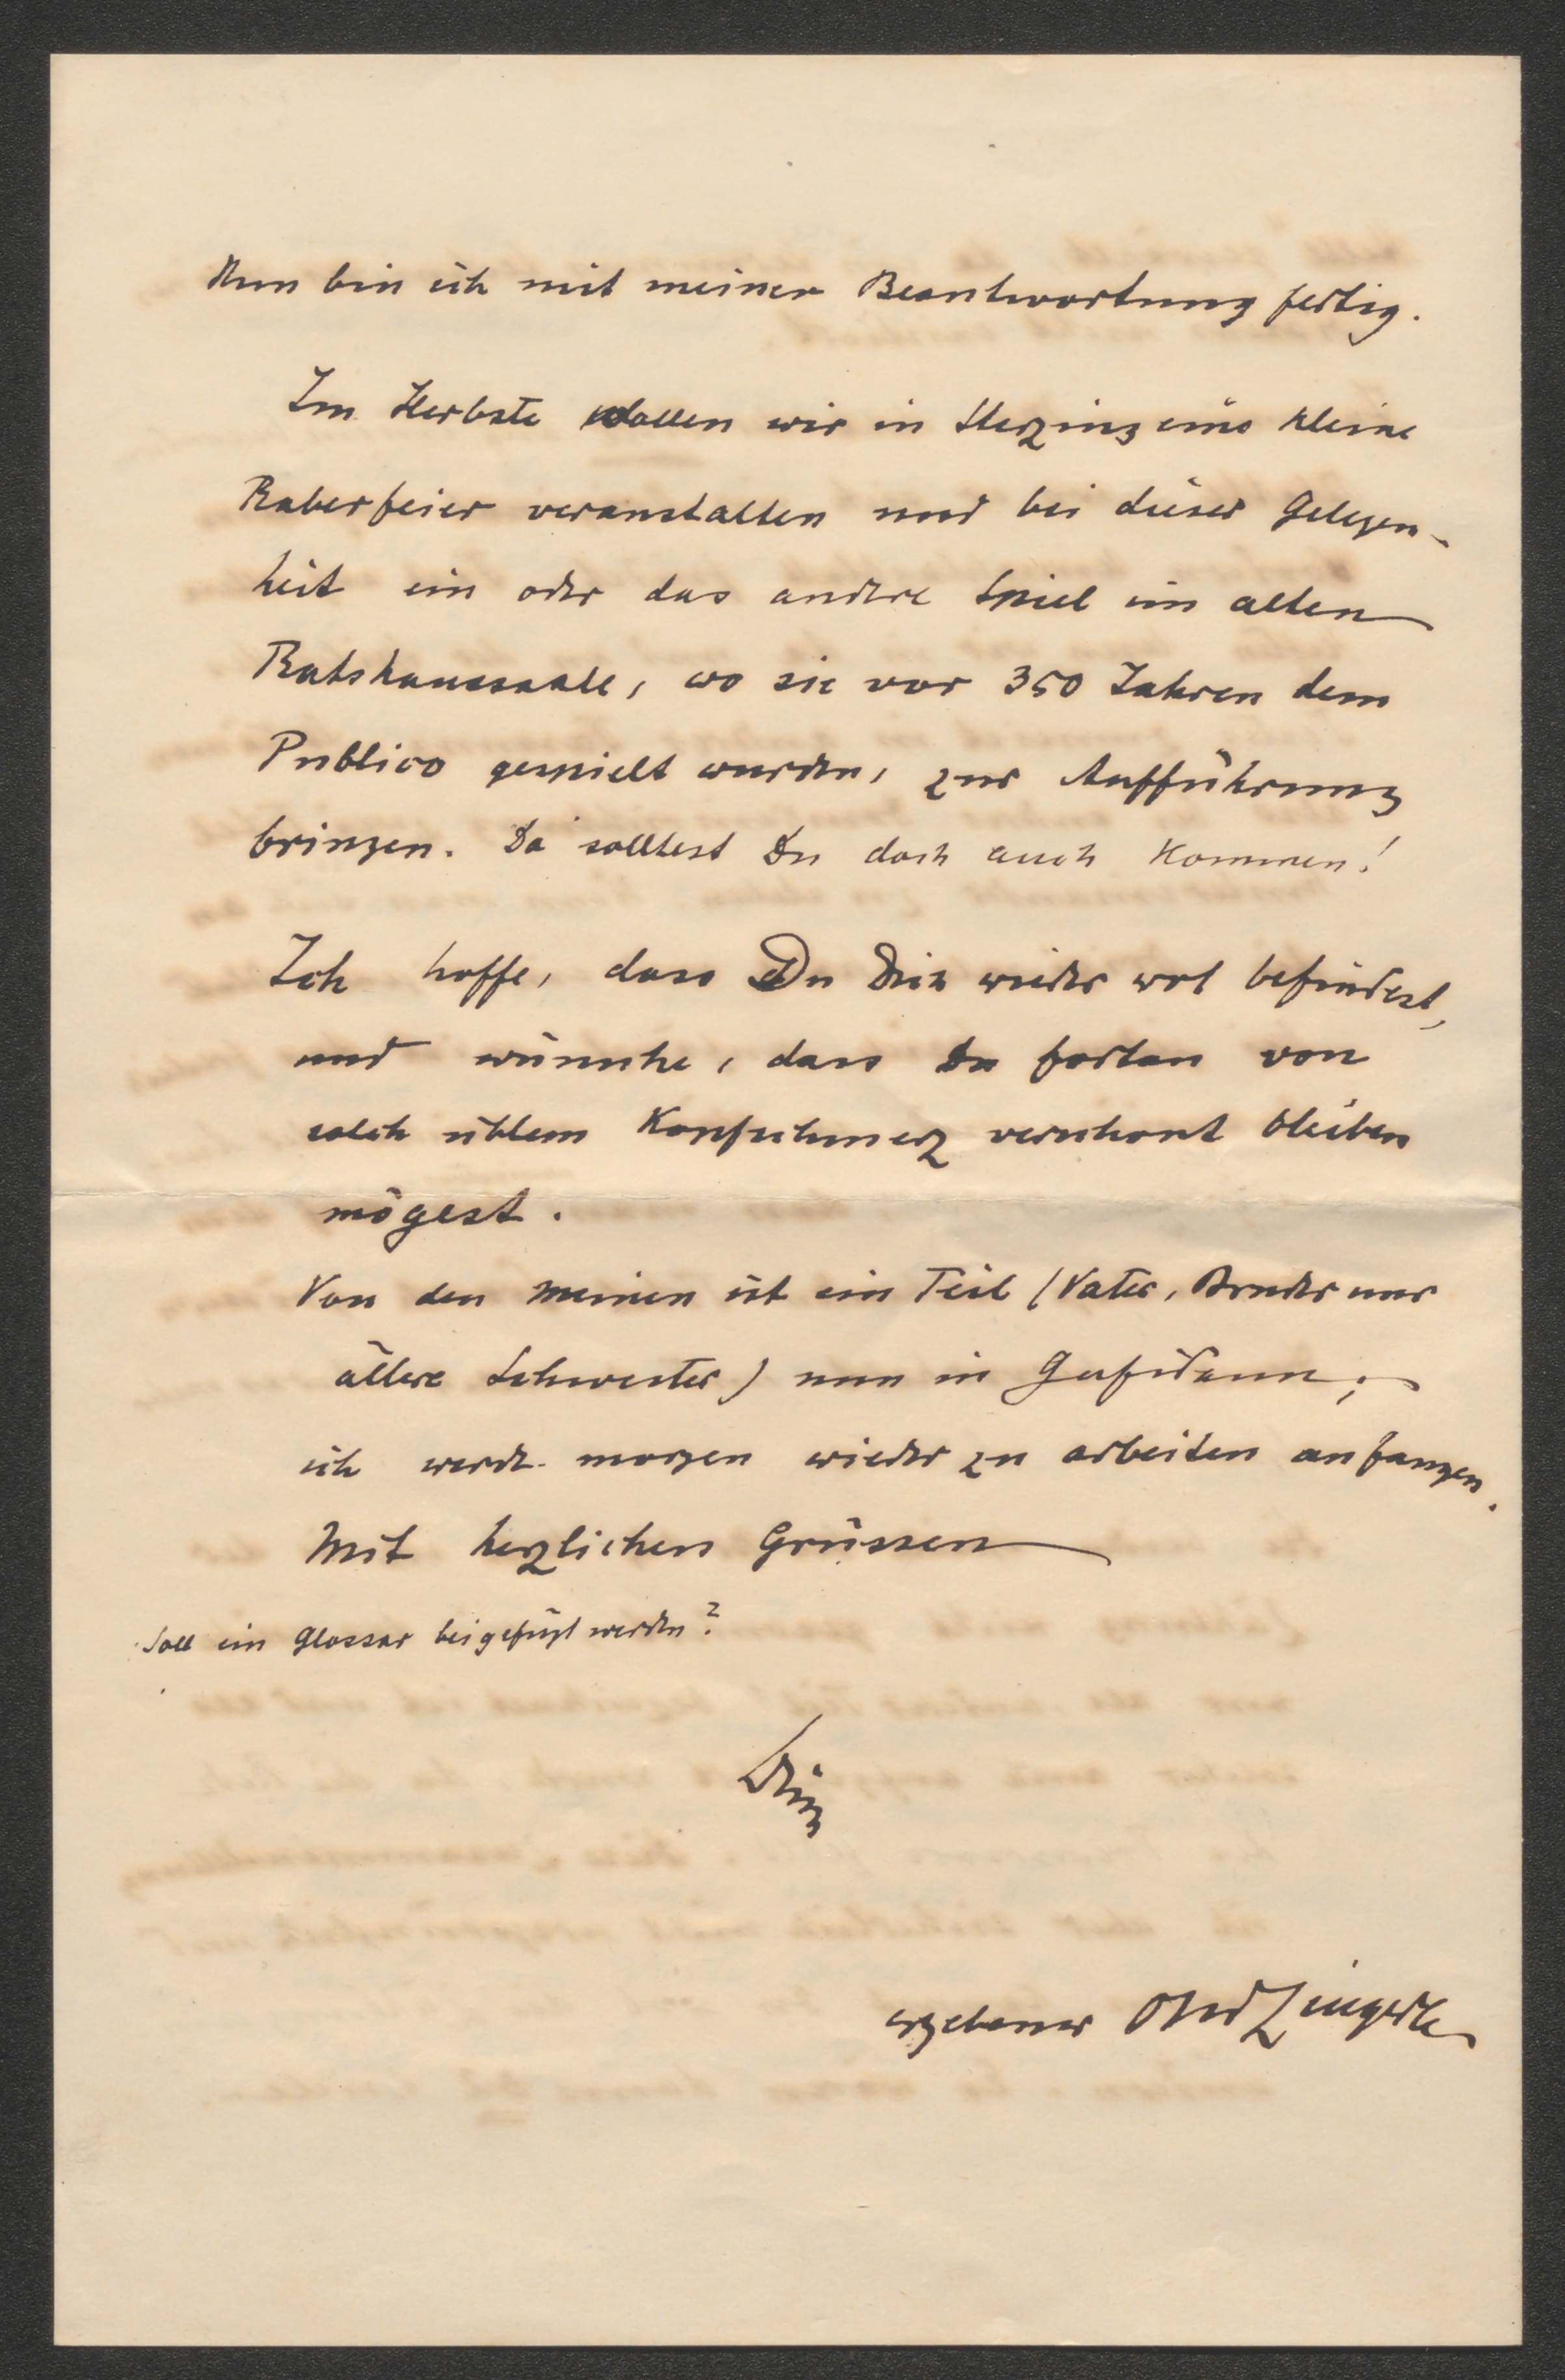 Nun bin ich mit meiner Beantwortung fertig.
Im Herbste wollen wir in Sterzing eine kleine
Raberfeier veranstalten und bei dieser Gelegen-
heit ein oder das andere Spiel im alten
Rathaussaale, wo sie vor 350 Jahren dem
Publico gespielt wurden, zur Aufführung
bringen. Da solltest Du doch auch kommen!
Ich hoffe, dass Du Dich wieder wol befindest,
und wünsche, dass Du fortan von
solch üblem Kopfschmerz verschont bleiben
mögest.
Von den Meinen ist ein Teil (Vater, Bruder und
ältere Schwester) nun in Gufidaun;
ich werde morgen wieder zu arbeiten anfangen.
Mit herzlichen Grüssen
Soll ein Glossar beigefügt werden?
Dein
ergebener Osw Zingerle